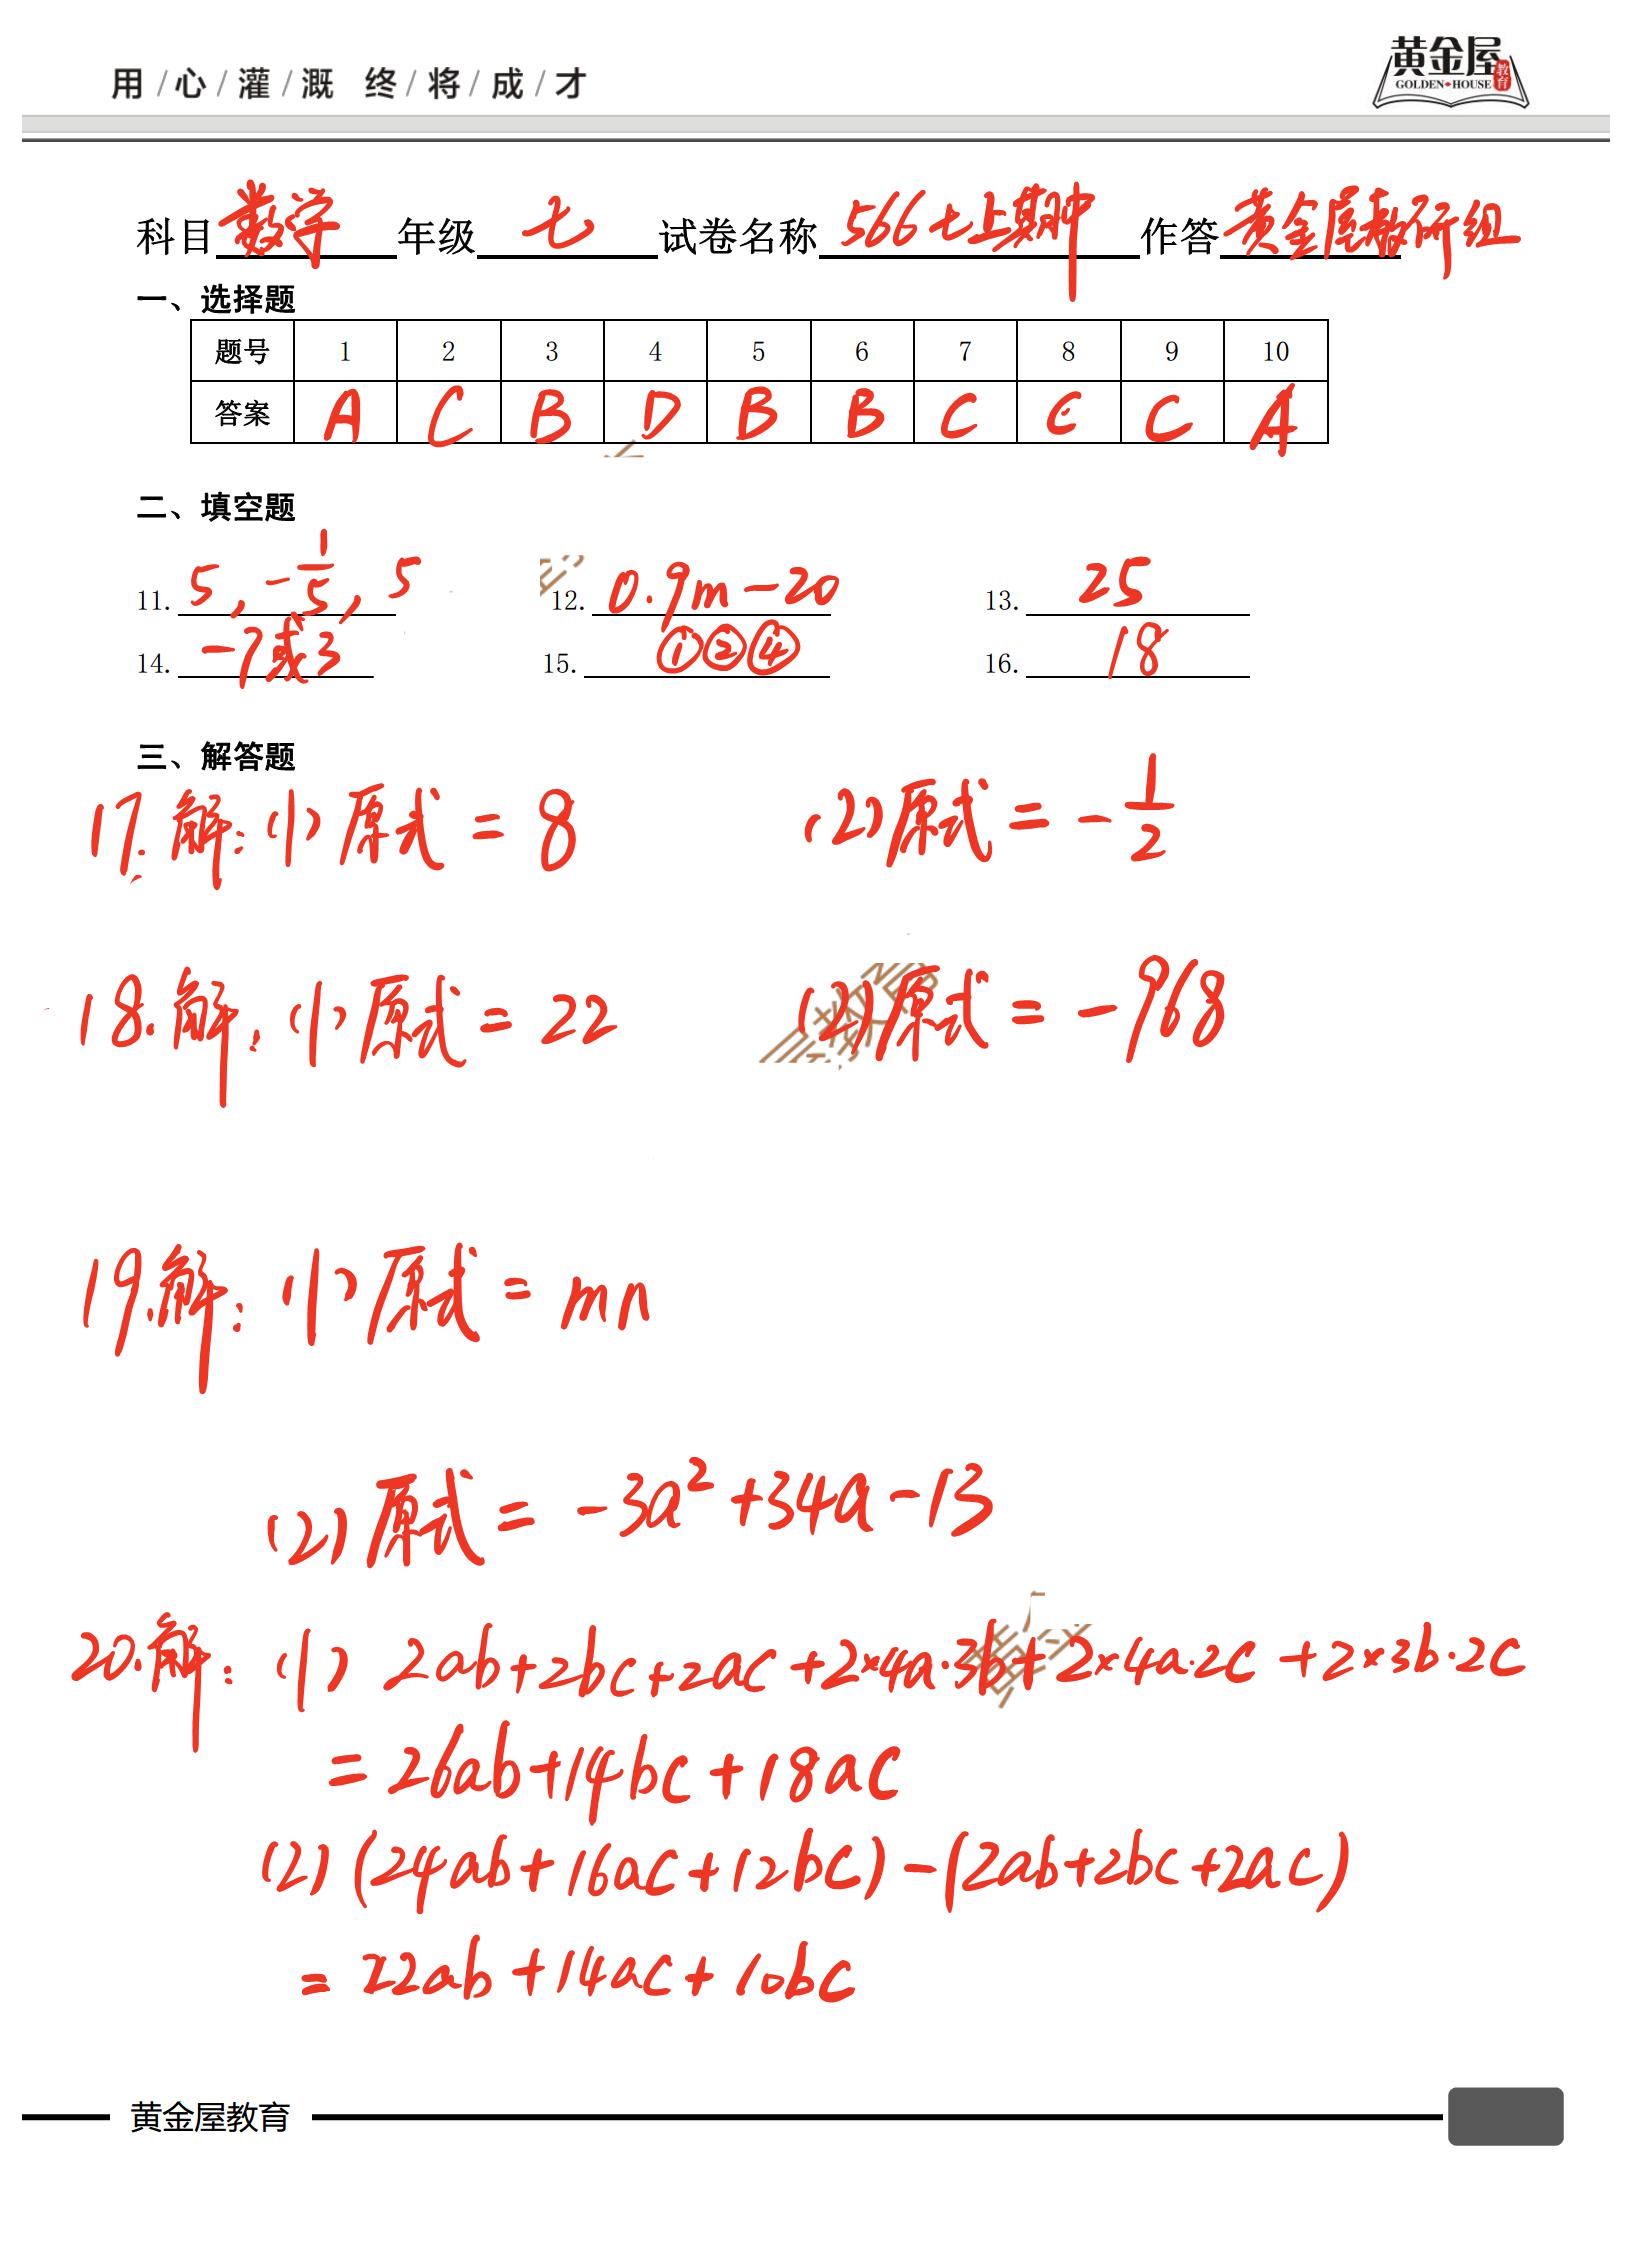 用/心/灌/溉 终/将/成/才
黄金屋教育
GOLDEN HOUSE
科目数学年级七试卷名称566七上期中作答黄金屋教研组
一、选择题
题号 1 2 3 4 5 6 7 8 9 10
答案 A C B D B B C C C A
二、填空题
11. 5, -1/5, 5 12. 0.9m-20 13. 25
14. -7或3 15. ①②④ 16. 18
三、解答题
17.解:(1)原式=8 (2)原式=-1/2
18.解:(1)原式=22 (2)原式=-968
19.解:(1)原式=mn
(2)原式=-3a²+34a-13
20.解:(1) 2ab+2bc+2ac+2×4a·3b+2×4a·2c+2×3b·2c
=26ab+14bc+18ac
(2)(24ab+16ac+12bc)-(2ab+2bc+2ac)
=22ab+14ac+10bc
黄金屋教育